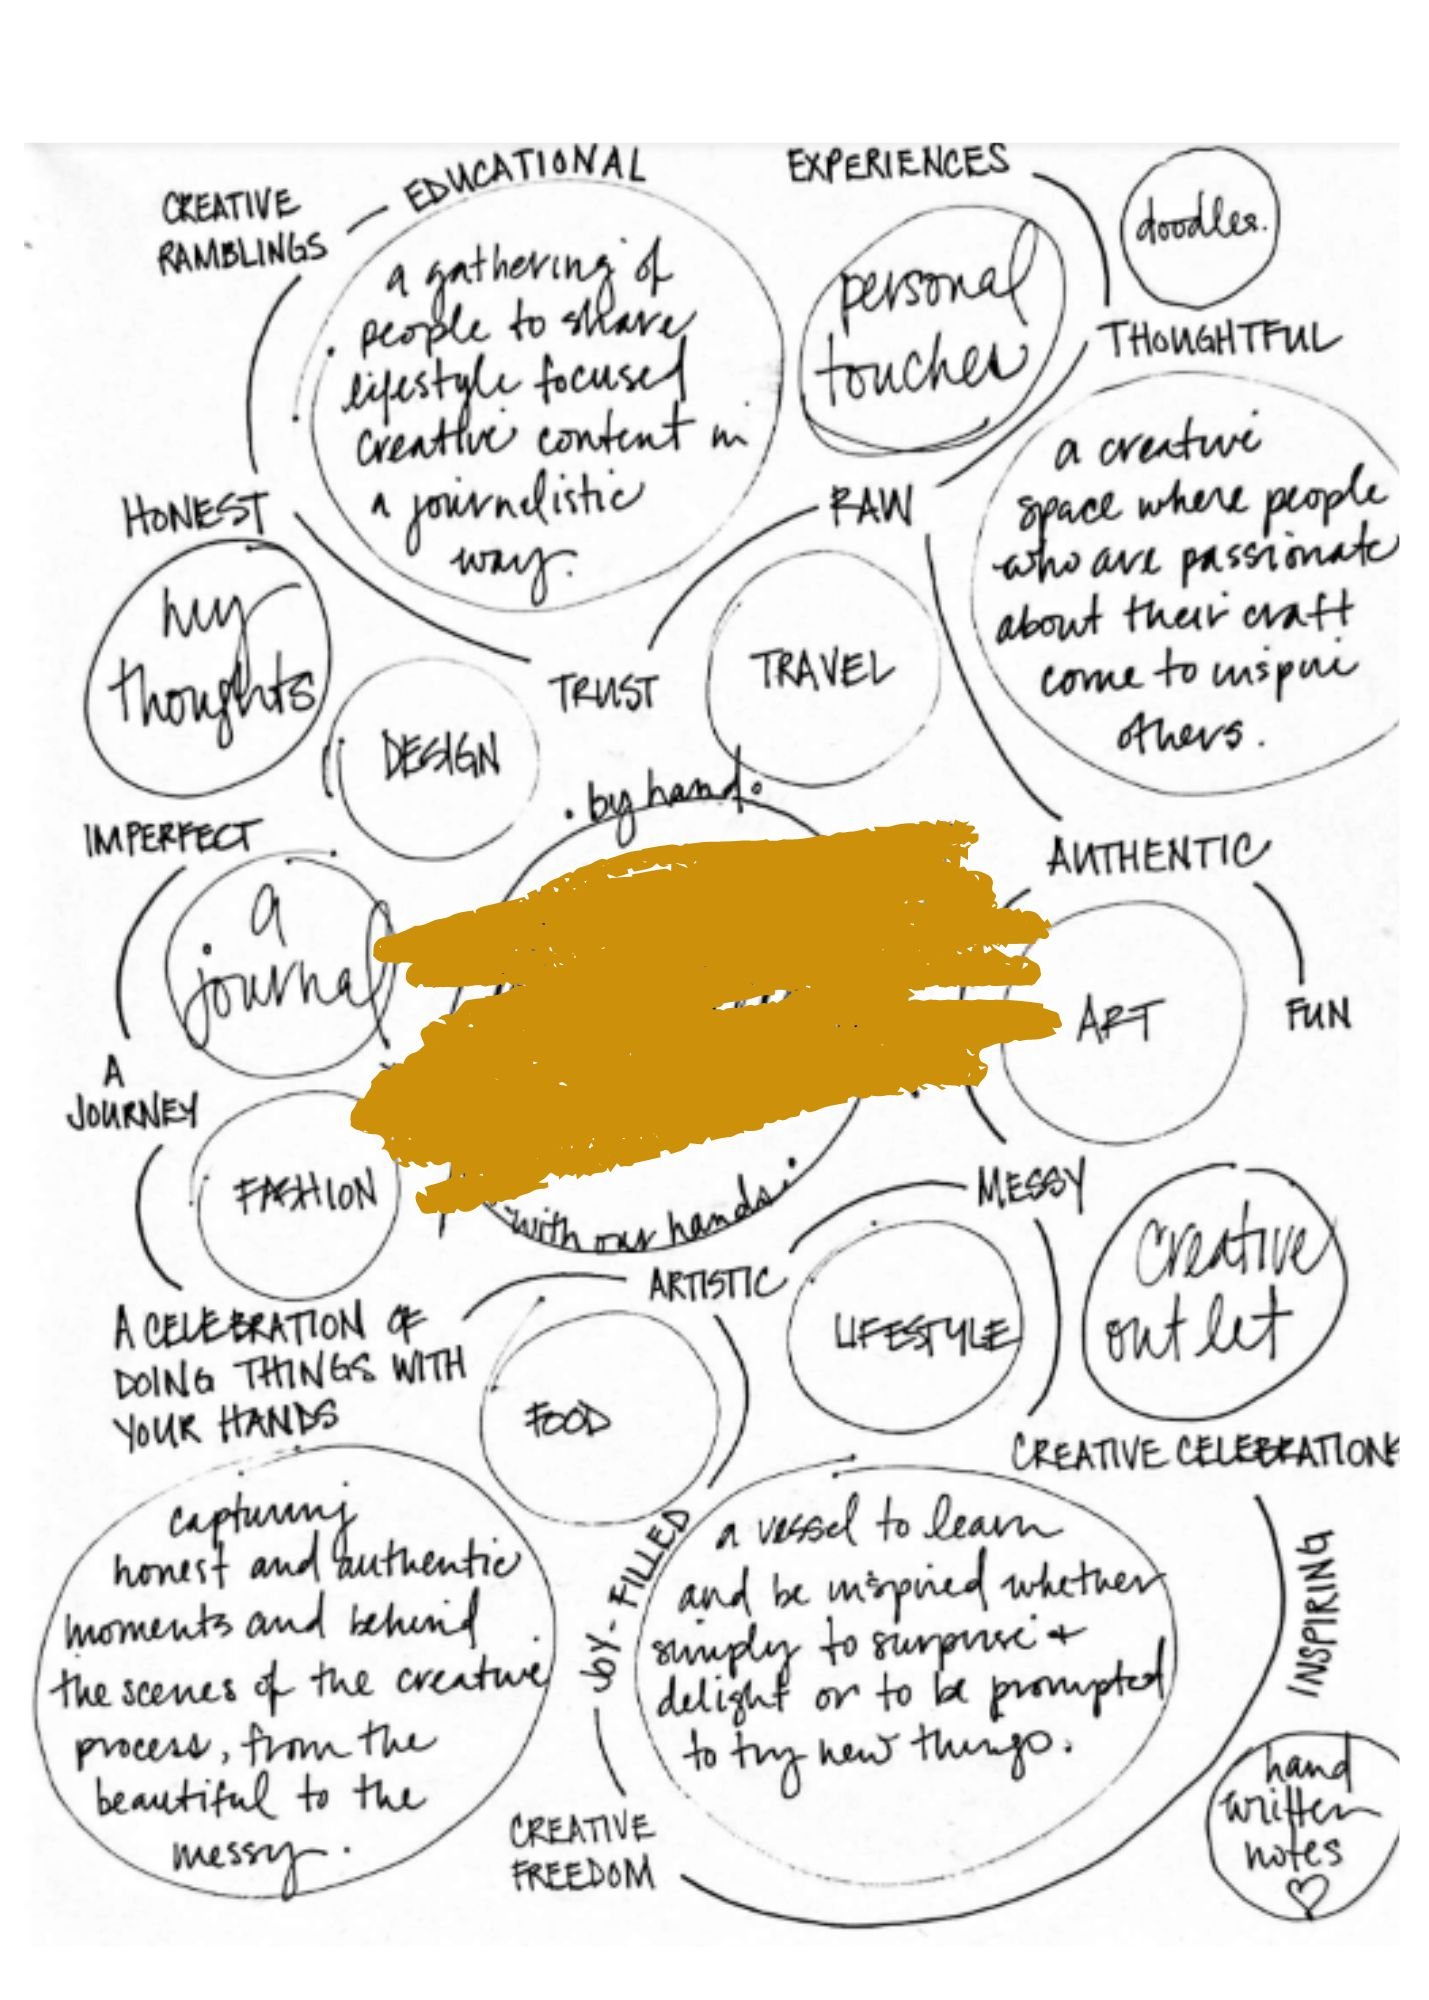 CREATIVE
RAMBLINGS
EDUCATIONAL
EXPERIENCES
doodles.
a gathering of
people to share
lifestyle focused
creative content in
a journalistic
way.
personal
touches
THOUGHTFUL
a creative
space where people
who are passionate
about their craft
come to inspire
others.
HONEST
RAW
hey
thoughts
TRUST
TRAVEL
DESIGN
. by hand.
IMPERFECT
AUTHENTIC
a
journal
ART
FUN
A
JOURNEY
FASHION
with our hands.
MESSY
creative
outlet
ARTISTIC
LIFESTYLE
A CELEBRATION OF
DOING THINGS WITH
YOUR HANDS
FOOD
CREATIVE CELEBRATIONS
capturing
honest and authentic
moments and behind
the scenes of the creative
process, from the
beautiful to the
messy.
JOY-FILLED
a vessel to learn
and be inspired whether
simply to surprise +
delight or to be prompted
to try new things.
INSPIRING
CREATIVE
FREEDOM
hand
written
notes